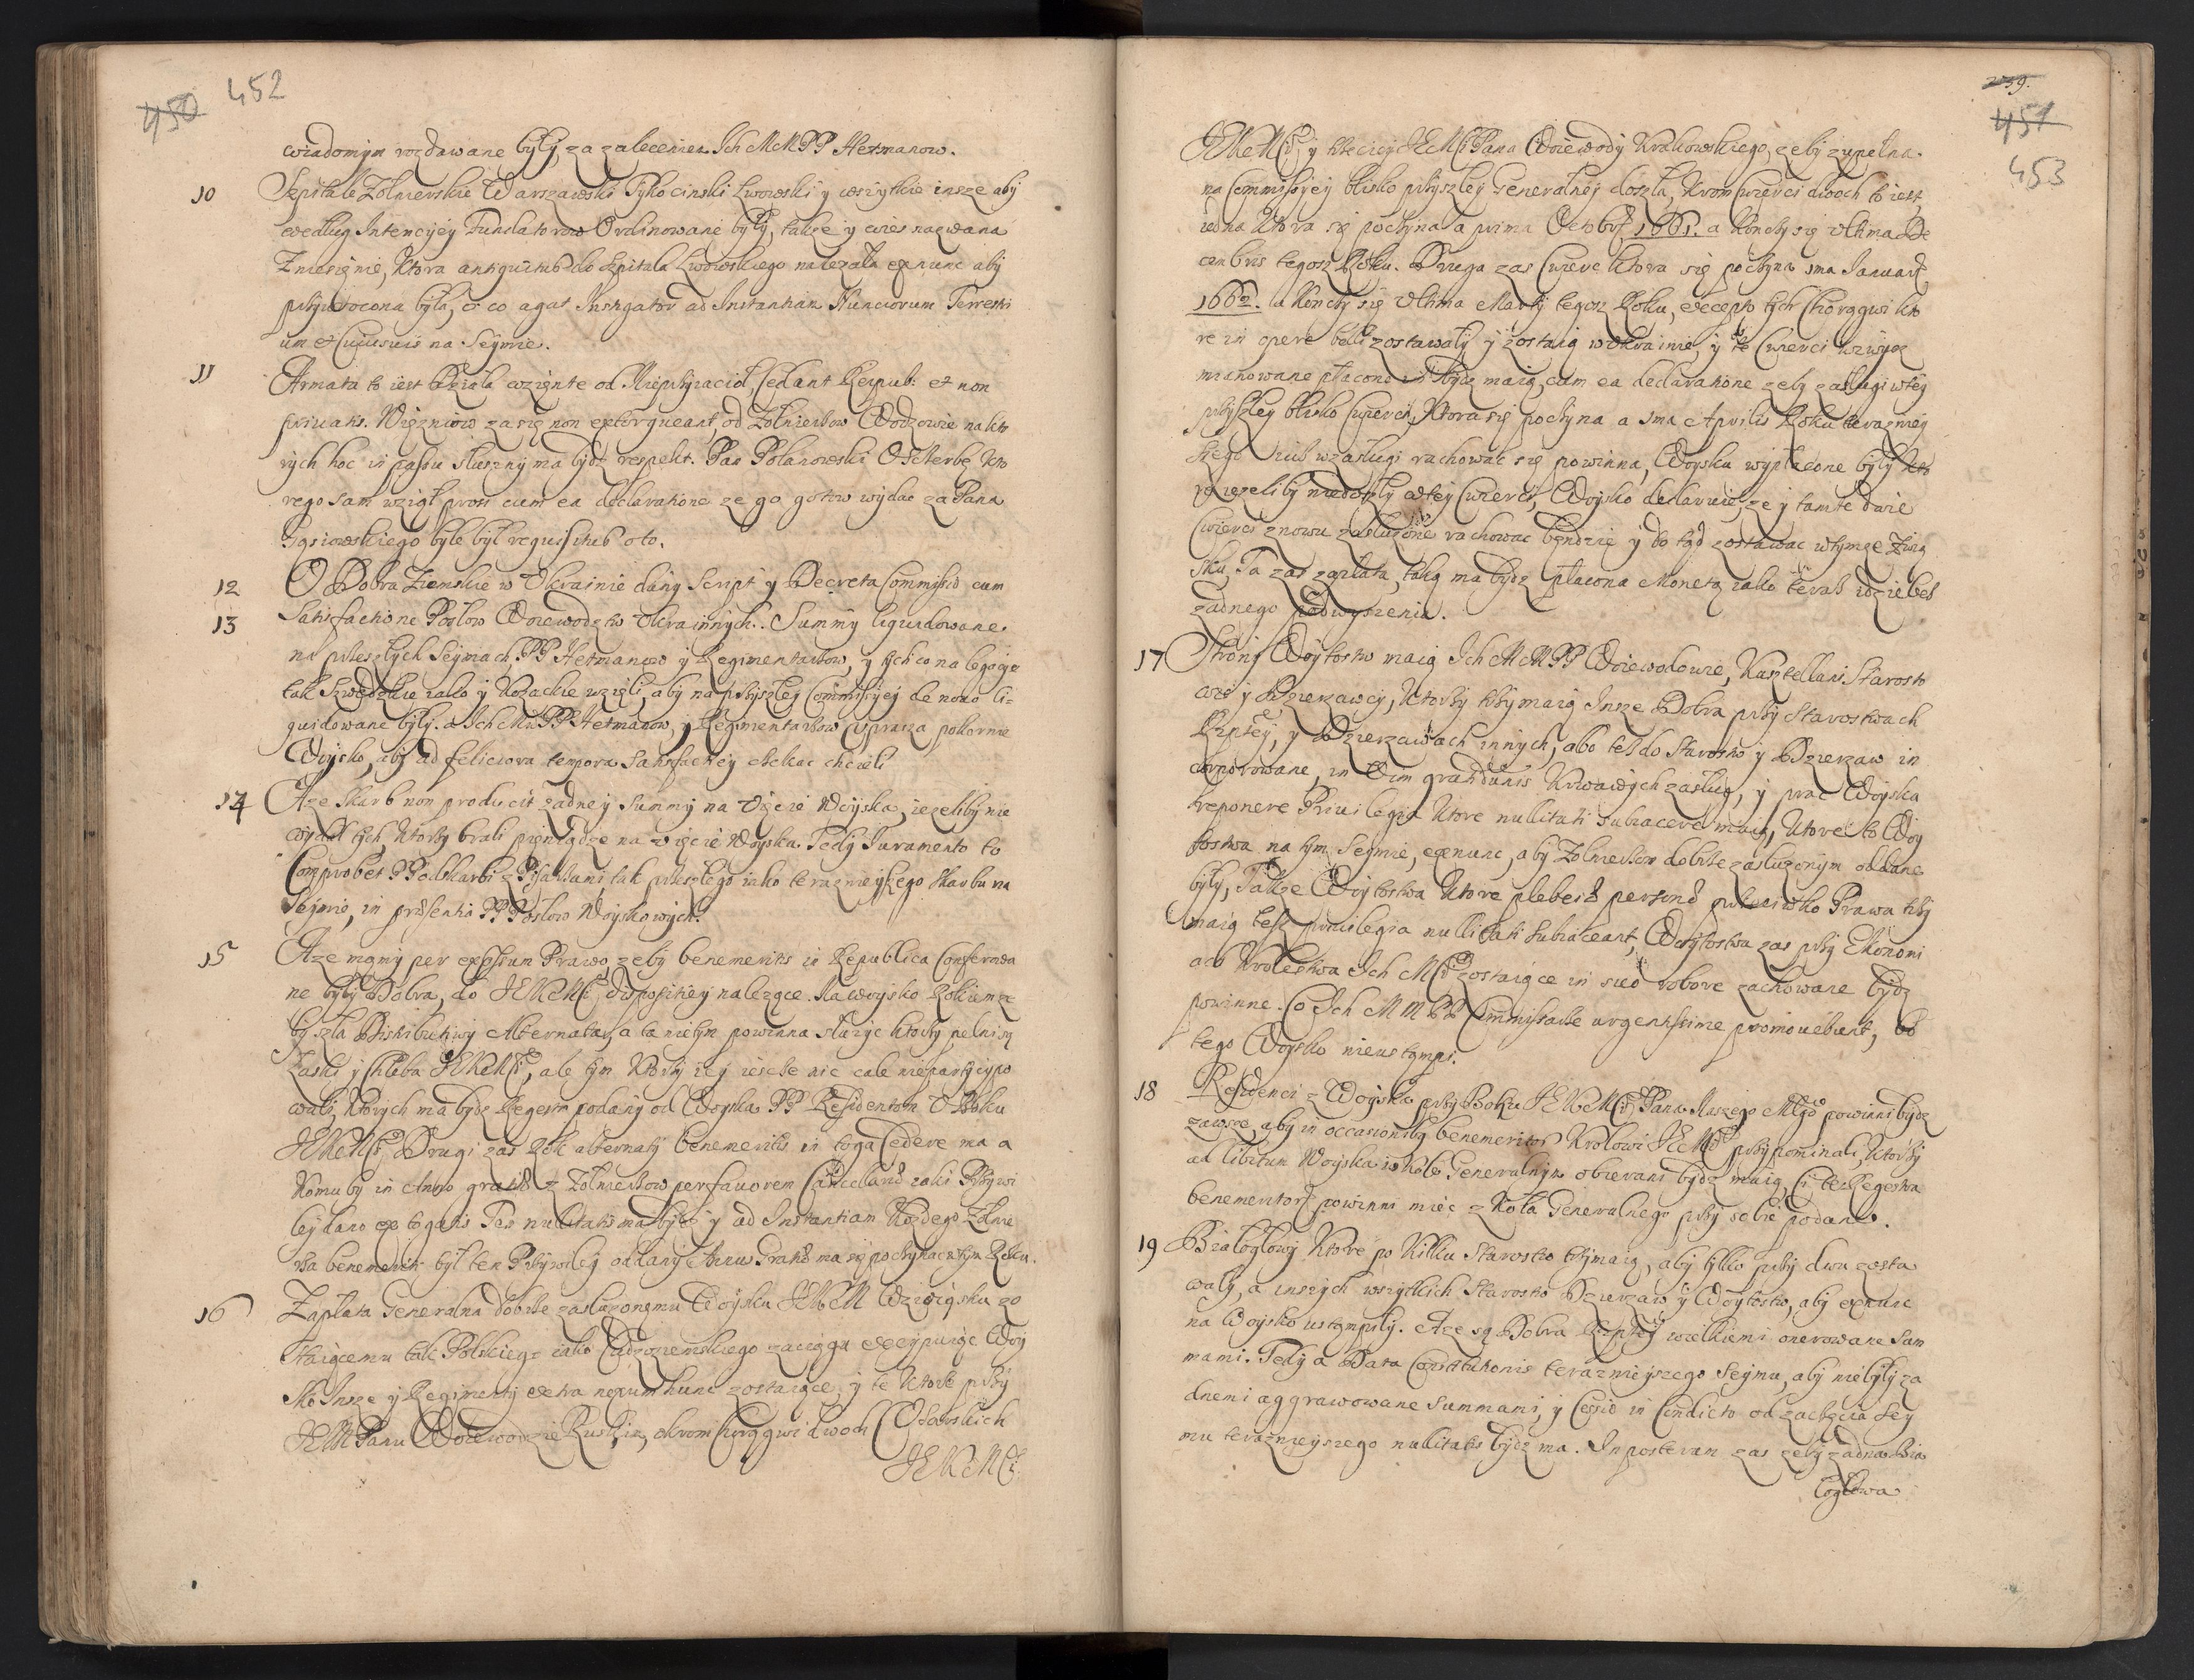 450 452
wiadomym rozdawane były, za zaleceniem Ich MM PP Hetmanow.
10 Szpitale Zolnierskie Warszawski Tykocinski Lwowski y wszytkie insze aby
według Intencyey Fundatorow Ordinowane były, także y wies nazwana
Zniesienie, ktora antiquitus do Szpitala Lwowskiego nalezała exnunc aby
przywrocona była, o co agat Instigator ad Instantiam Nunciorum Terrestri
um et Cuiusuis na Seymie.
11 Armata to iest Działa wzięte od Nieprzyaciol, cedant Reipub: et non
priuatis. Więzniow zasię non extorqueant, od Zolnierzow Wodzowie na kto
rych hoc in passu słuszny ma bydz respekt. Pan Polanowski O Scherbę kto
rego sam wziął prosi cum ea declaratione ze go gotow wydac za Pana
Gąsiowskiego byle był requisitus oto.
12 O Dobra Ziemskie w Ukrainie dany Script y Decreta Commissio cum
13 Satisfactione Posłow Woiewodztw Ukrainnych. Summy liquidowane
na przeszłych Seymach PP Hetmanow y Regimentarzow, y tych co na legacye
tak Szwedzkie iako y Kozackie wzięli, aby na przyszłey Commissyey de nouo li=
quidowane były. a Ich Mm PP Hetmanow, y Regimentarzow uprasza pokornie
Woysko, aby ad feliciora tempora Satisfactiey czekac chcieli
14 A ze Skarb non producit zadney Summy na Uięcie Woyska, iezeliby nie
wydał tych, ktorzy brali pieniądze na uięcie Woyska. Tedy Iuramento to
Comprobet PPodskarbi z Pisarzami, tak przeszłego iako teraznieyszego Skarbu na
Seymie, in præsentia PP Posłow Woyskowych.
15 A ze mamy per expressum Prawo, zeby benemeritis in Republica Conferowa
ne były Dobra, do JEKoMCi dispositiey nalezące. Na woysko Rokiem ze
by szła Distributiwy Alternata, a ta nietym powinna słuzyc ktorzy pełni są
Łaski y Chleba JEKoMCi, ale tym ktorzy iey iescze nic cale niepartycypo
wali, ktorych ma bydz Regestr podany od Woyska PP Residentom U Boku
JEKoMCi Drugi zas Rok alternaty benemeritis in toga Cedere ma a
komuby in Anno gratiæ z Zolnierzow per fauorem Cancellariæ iaki Przywi
ley dano ex togatis Ten nullitatis ma bydz y ad Instantiam Kozdego Zolnie
rza benemeriti był ten Przywiley oddany Annus Gratiæ ma się poczynac w tym Roku.
16 Zapłata Generalna dobrze zasluzonemu Woysku JEKoM w Związku zo
staiącemu tak Polskiego iako Cudzoziemskiego zaciągu excypuiąc Woy
sko Insze y Regimenty extra nexum hunc zostaiące, y te ktore przy
JEM Panu Woiewodzie Ruskim, okrom Chorągwi dwoch Usarskich
JEKoMCi
239.
451
453
JEKoMCi, y trzeciey JEMCi Pana Woiewody Krakowskiego, zeby zupełna
na Commissyey blisko przyszłey Generalney doszła, krom Cwierci dwoch to iest
iedna ktora się poczyna a prima Octobr 1661. a konczy się Ultima De
cembris tegosz Roku. Druga zas Cwierc ktora się poczyna 1ma Ianuarij
1662. a konczy się Ultima Martij tegosz Roku, except tych Chorągwi kto
re in opere belli zostawały y zostaią w Ukrainie, y te Cwierci wzwysz
mianowane płacone bydz maią, cum ea declaratione zeby zasługi w tey
przyszłey blisko Cwierci, ktora się poczyna a 1ma Aprilis Roku teraznie
szego iusz w zasługi rachowac się powinna, Woysku wypłacone były kto
re iezeliby niedoszły w tey Cwierci, Woysko declaruie, ze y tamte dwie
Cwierci znowu zasłuzone rachowac będzie y do tąd zostawac w tymze Zwią
sku, Ta zas zapłata, taką ma bydz płacona Monetą iako teraz idzie bez
zadnego podwyszenia.
17 Strony Woytostw maią Ich MM PP Woiewodowie, Kasztellani Starosto
wie y Dzierzawcy, ktorzy trzymaią Insze Dobra przy Starostwach
Rzptey, y Dzierzawach innych, abo tesz do Starostw y Dzierzaw in
corporowane, in Vim grandiunis krwawych zasług, y prac Woyska
reponere Priuilegia ktore nullitati subiacere maią, ktore to Woy
tostwa na tym Seymie, exnunc, aby Zolnierzom dobrze zasłuzonym oddane
były, Także Woytostwa ktore plebeiæ personæ przeciwko Prawu trzy
maią tesz priuilegia nullitati subiaceant, Woytostwa zas przy Ekonomi
ach Krolestwa Ich MCi zostaiące in suo robore zachowane bydz
powinne. Co Ich MM PP Commissarze urgentissime promouebunt, bo
tego Woysko nieustąmpi.
18 Residenci z Woyska przy Boku JEKoMCi Pana Naszego Mgo powinni bydz
zawsze, aby in occasionibus benemeritos Krolowi JEMCi przypominali, ktorzy
ad libitum Woyska w Kole Generalnym obierani bydz maią, Ci tesz Regestra
benemeritorum powinni miec z Koła Generalnego przy sobie podane.
19 Białogłowy ktore po kilku Starostw trzymaią, aby tylko przy dwu zosta
wały, a inszych wszytkich Starostw Dzierzaw y Woytostw, aby exnunc
na Woysko ustąmpiły. A ze są Dobra Rzptey wielkiemi onerowane Sum
mami. Tedy a Data Constitutionis teraznieyszego Seymu, aby niebyły za
dnemi aggrawowane Summami, y Cessio in Condicto od zaczęcia Sey
mu teraznieyszego nullitatis bydz ma. In posterum zas zeby zadna Bia
łogłowa